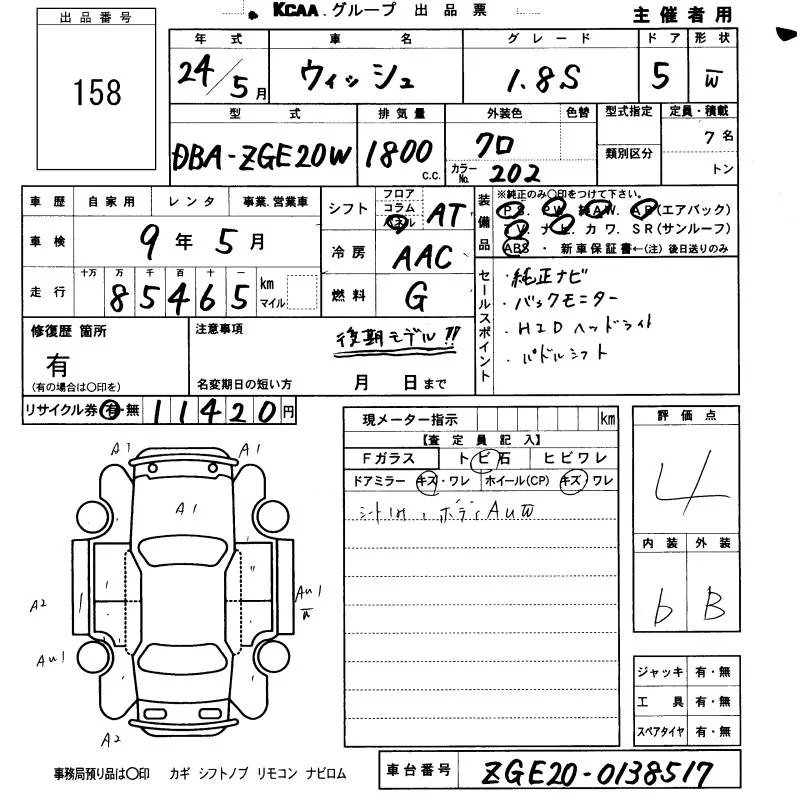 KCAA.グループ 出品票
主催者用
出品番号
158
年式 車名 グレード ドア 形状
24/5月 ウィッシュ 1.8S 5 W
型式 排気量 外装色 色替 型式指定 定員・積載
DBA-ZGE20W 1800 c.c. クロ 類別区分 7名
カラーNo. 202 トン
車歴 自家用 レンタ 事業.営業車
車検 9年5月
走行 十万 万 千 百 十 一
85465 km マイル
シフト フロア コラム パネル AT
冷房 AAC
燃料 G
装備品
※純正のみ〇印をつけて下さい。
P.S. P.W. 純A.W. A.B(エアバック)
T.V. ナビ. カワ. SR(サンルーフ)
ABS ・ 新車保証書←(注)後日送りのみ
セールスポイント
・純正ナビ
・バックモニター
・HIDヘッドライト
・パドルシフト
修復歴 箇所
有
(有の場合は〇印を)
注意事項
後期モデル!!
名変期日の短い方 月 日まで
リサイクル券 有・無 11420円
現メーター指示 km
【査定員記入】
Fガラス トビ石 ヒビワレ
ドアミラー キズ・ワレ ホイール(CP) キズ・ワレ
ボディAUW
評価点
4
内装 外装
b B
A1 A1
A1
A2 AU1
W
AU1
A2
ジャッキ 有・無
工具 有・無
スペアタイヤ 有・無
事務局預り品は〇印 カギ シフトノブ リモコン ナビロム
車台番号 ZGE20-0138517